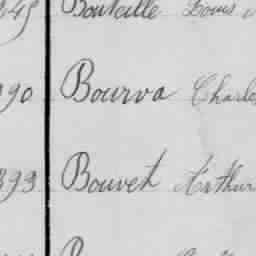 Bouteille Louis
90 Bourva Charles
893 Bouvet Arthur